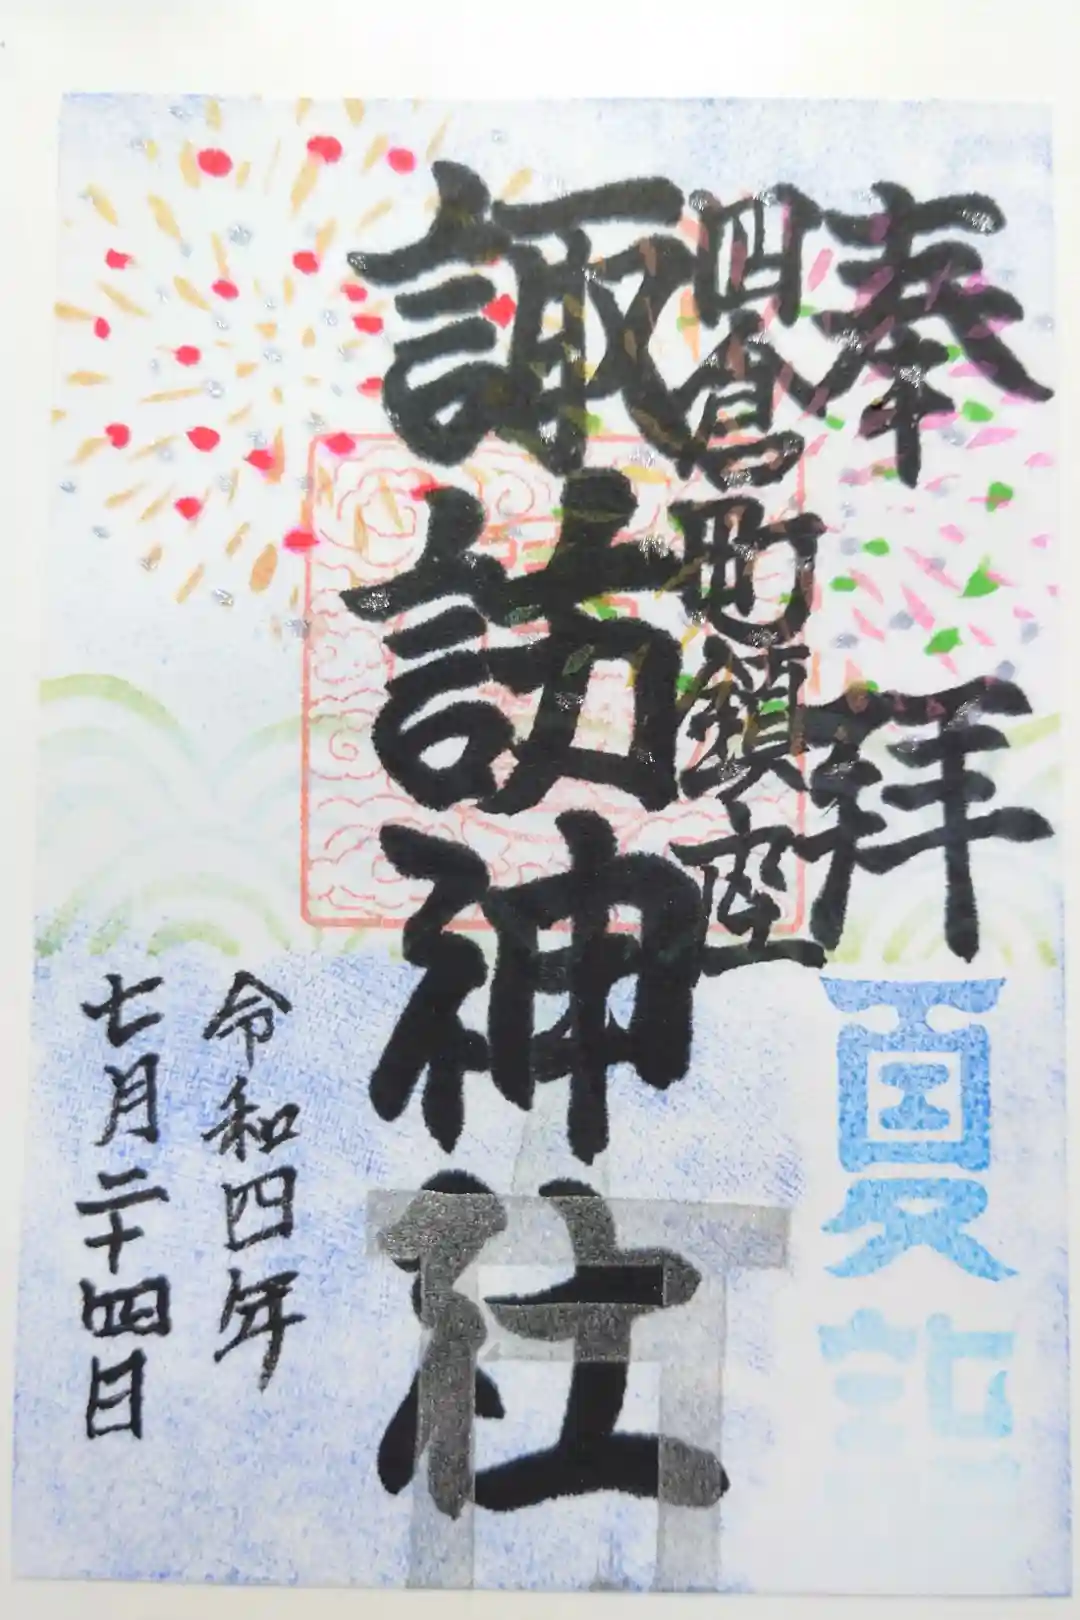 奉拝
夏詣
四倉町鎮座
諏訪神社
令和四年
七月二十四日